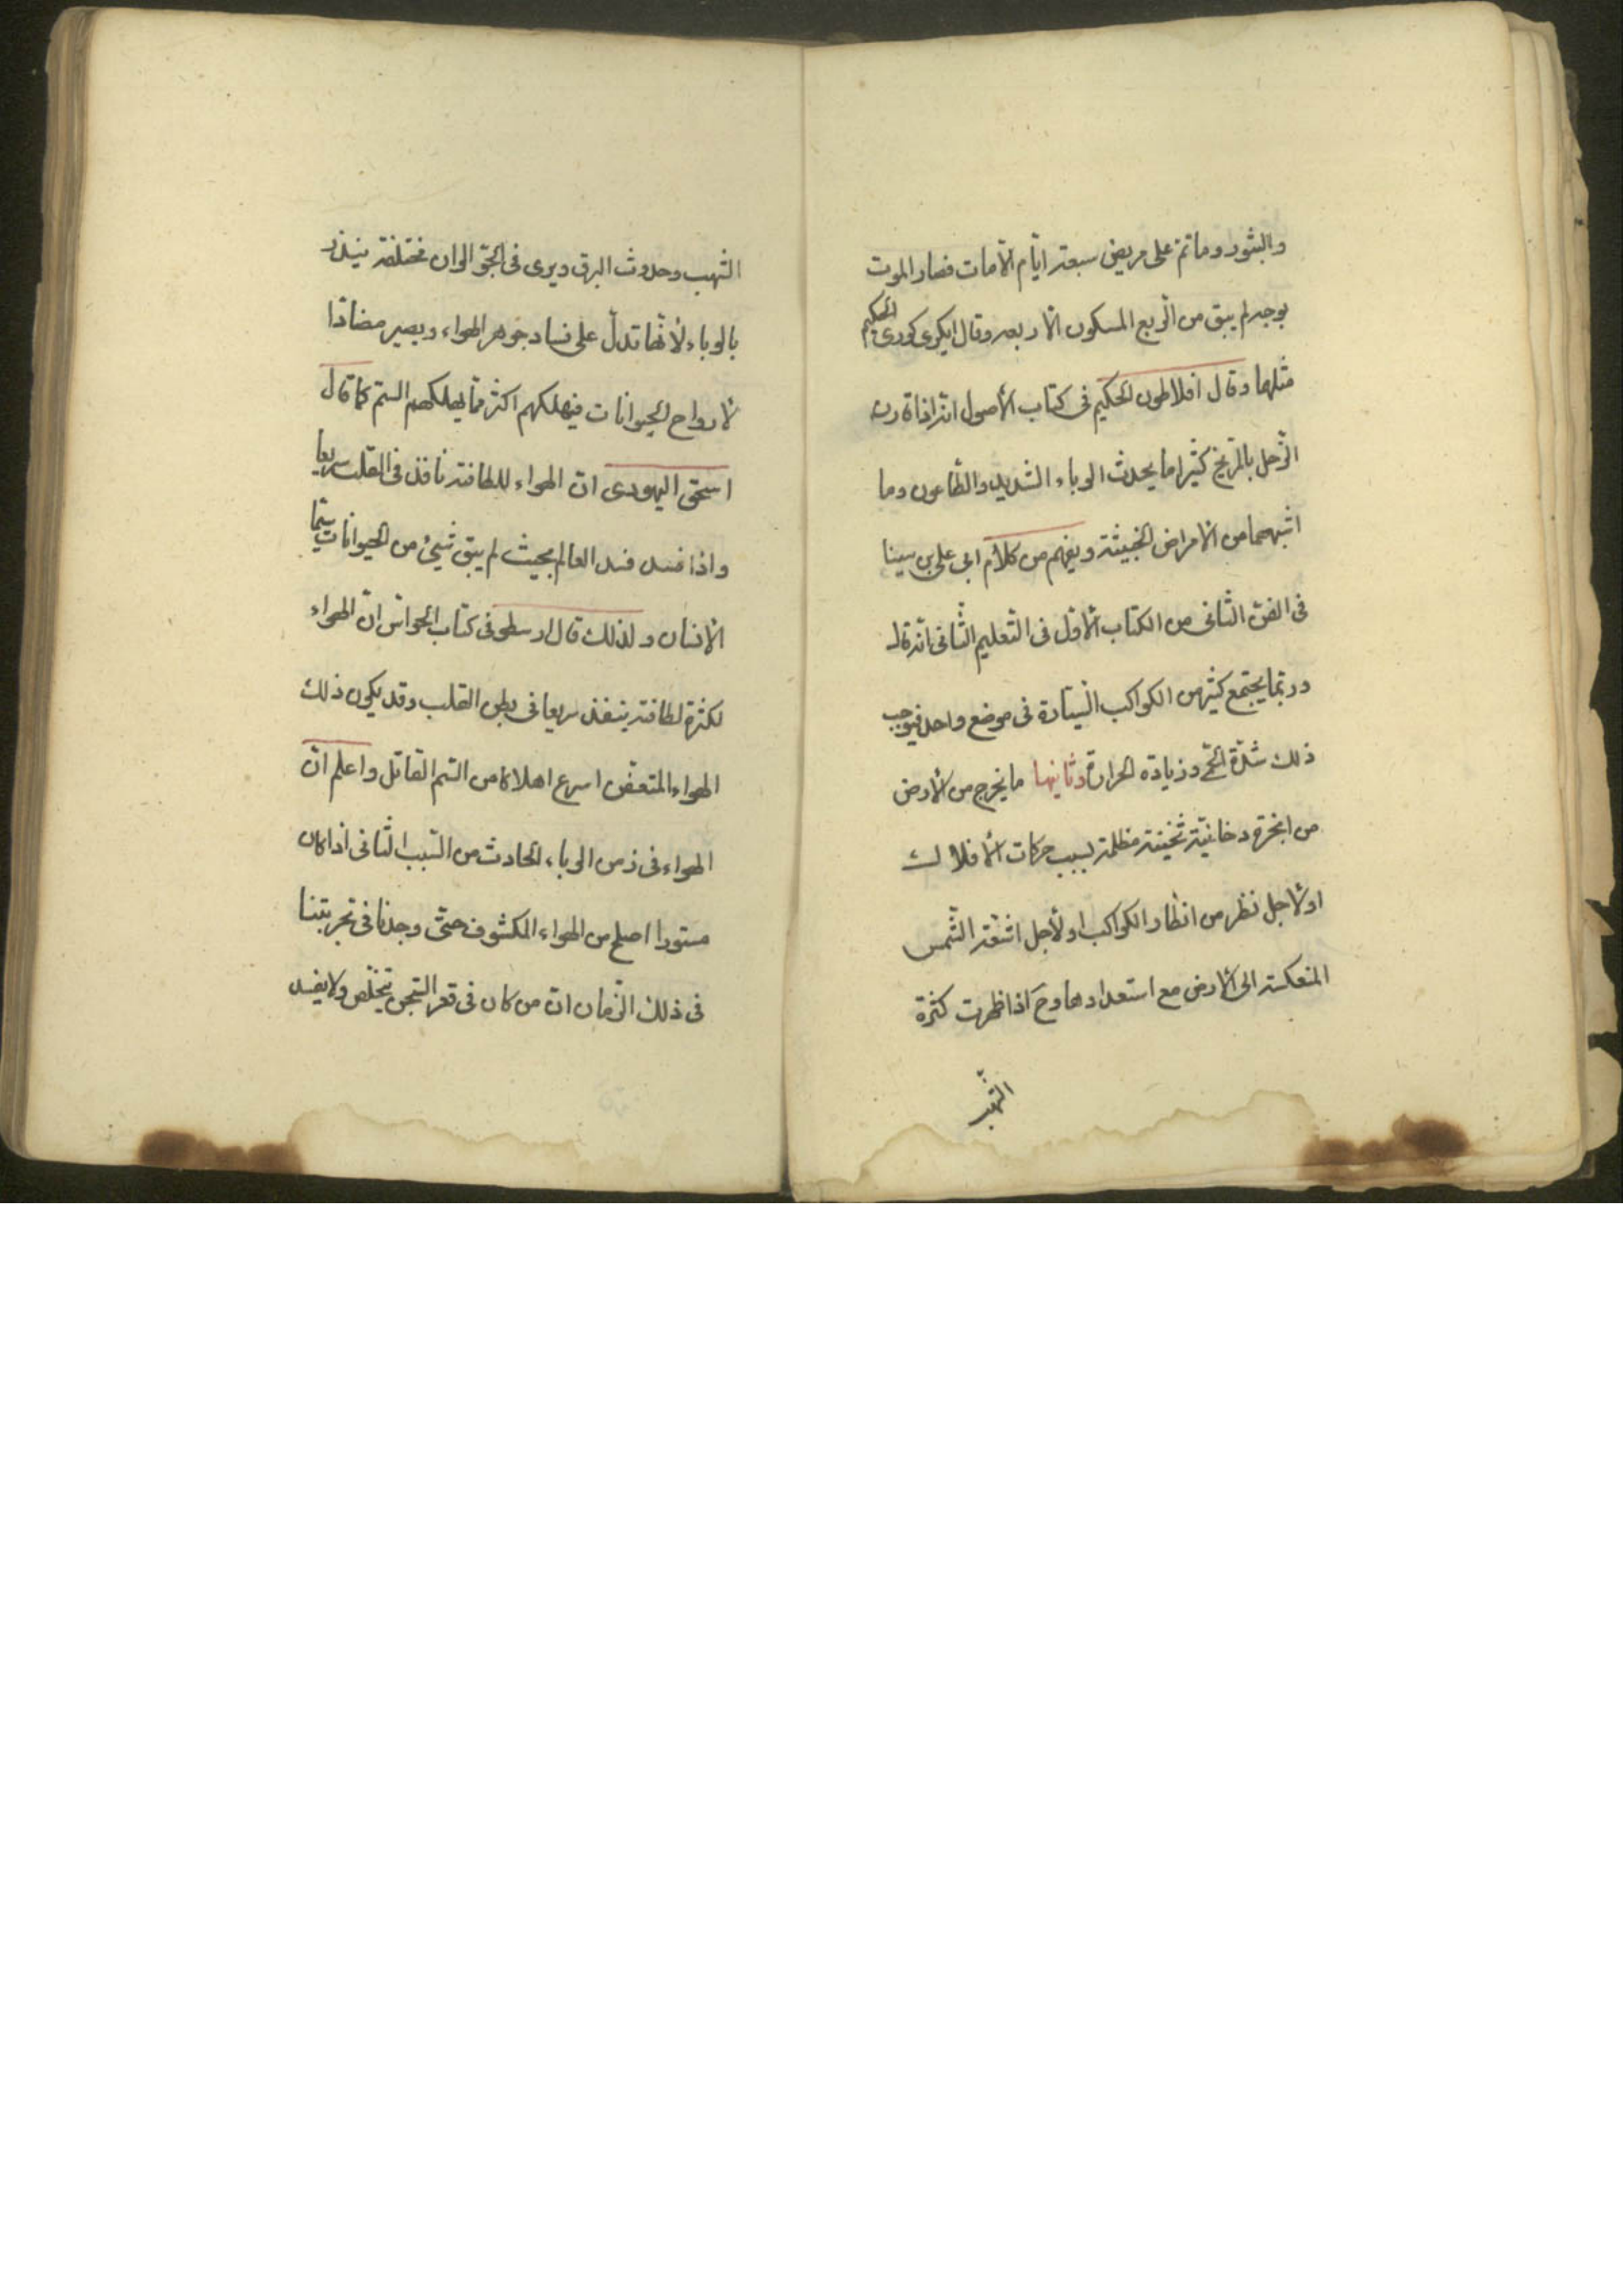 والبثور وماتمّ على مريض سبعة ايّام الّامات فصار الموت
بوجه لم يبق من الرّبع المسكون الّا ربعه وقال ايكرى كورى الحكيم
مثلها وقال افلاطون الحكيم فى كتاب الأصول انّه اذا قارن
الزّحل بالمرّيخ كثيرا ما يحدث الوباء الشديد والطّاعون وما
اشبههما من الأمراض الخبيثة ويفهم من كلام ابى على بن سينا
فى الفنّ الثّانى من الكتاب الأوّل فى التّعليم الثّانى انّه قال
وربّما يجتمع كثير من الكواكب السّيّارة فى موضع واحد فيوجب
ذلك شدّة الحمّى وزيادة الحرارة وثانيها ما يخرج من الأرض
من ابخرة دخانيّة ثخينة مظلمة بسبب حركات الأفلاك
اولأجل نظر من انظار الكواكب اولأجل اشعّة الشّمس
المنعكسة الى الأرض مع استعدادها وح اذا ظهرت كثرة
الشّهب
الشّهب وحدوث البرق ويرى فى الجوّ الوان مختلفة ينذر
بالوباء لأنّها تدلّ على فساد جوهر الهواء ويصير مضادّا
لأرواح الحيوانات فيهلكهم اكثر ممّا يهلكهم السّم كما قال
اسحق اليهودى انّ الهواء للطافته نافذ فى القلب سريعا
واذا فسد فسد العالم بحيث لم يبق شيئ من الحيوانات سيّما
الأنسان ولذلك قال ارسطو فى كتاب الحواسّ انّ الهواء
لكثرة لطافته ينفذ سريعا فى بطن القلب وقد يكون ذلك
الهواء المتعفّن اسرع اهلاكا من السّم القاتل واعلم انّ
الهواء فى زمن الوباء الحادث من السّبب الثّانى اذا كان
مستورا اصلح من الهواء المكشوف حتّى وجدنا فى تجربتنا
فى ذلك الزّمان انّ من كان فى قعر السّجن يتخلّص ولا يفسد